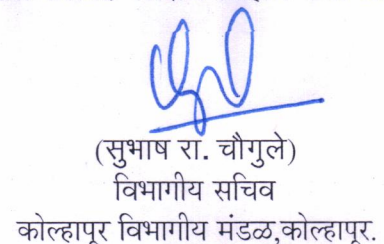 (सुभाष रा. चौगुले)
विभागीय सचिव
कोल्हापूर विभागीय मंडळ,कोल्हापूर.